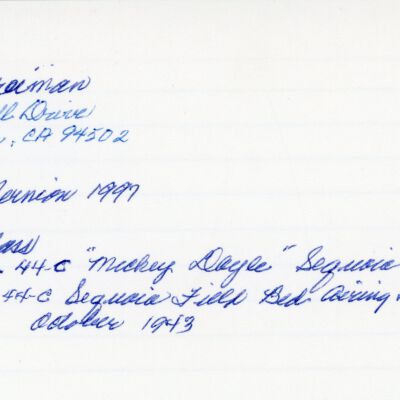 Drive
, CA 94502
1997
44-C "Mickey Doyle" Sequoia
44-C Sequoia Field Bed Airing
October 1943